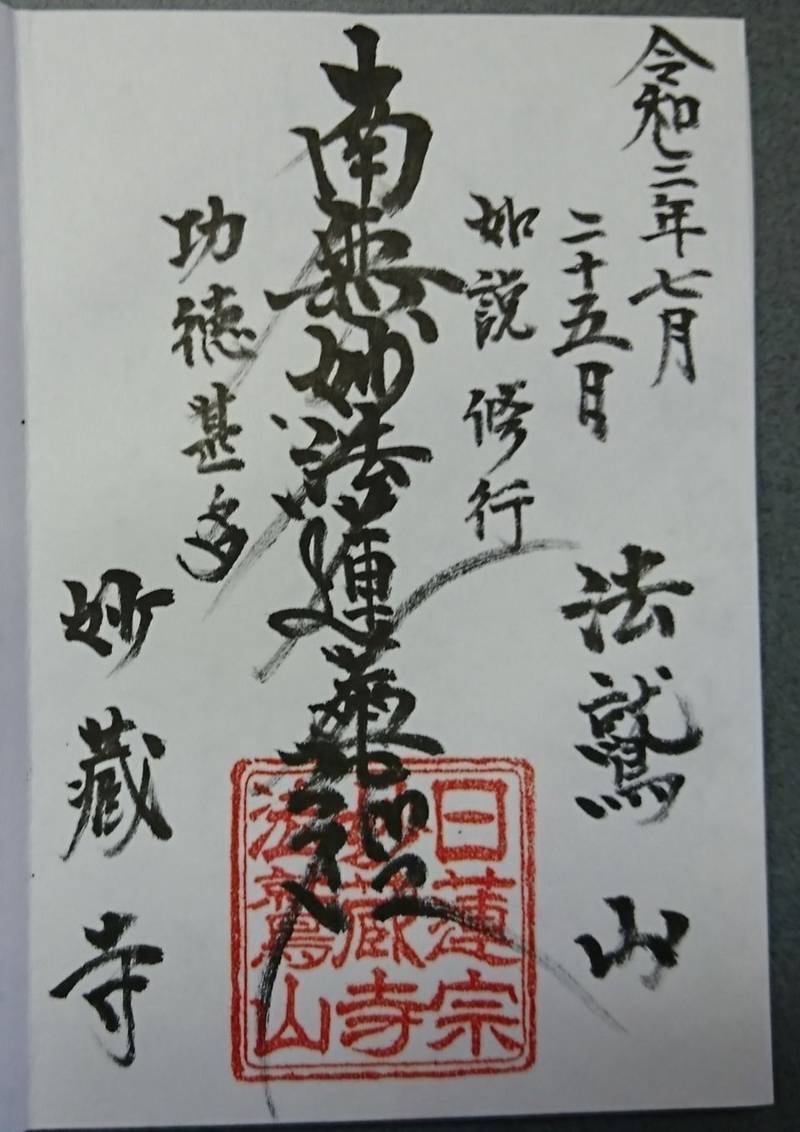 令和三年七月
二十五日
法鷲山
如説修行
南無妙法蓮華経
功徳甚多
妙藏寺
日蓮宗
妙藏寺
法鷲山